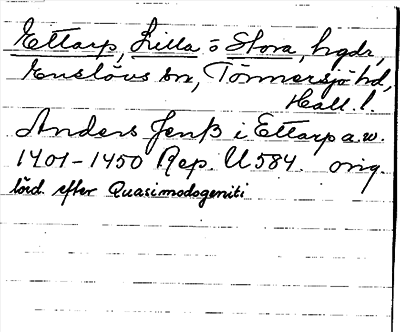 Ettarp, Lilla o Stora, bgdr,
Enslövs sn, Tönnersjö hd,
Hall. l.
Anders Jenß i Ettarp a.w.
1401-1450 Rep. U 584. orig.
lörd. efter Quasimodogeniti